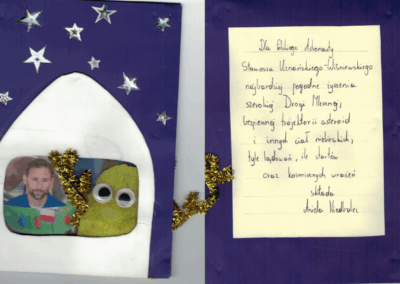 Dla Polskiego Astronauty
Sławosza Uznańskiego-Wiśniewskiego
najbardziej pogodne życzenia
szerokiej Drogi Mlecznej,
bezpiecznej trajektorii asteroid
i innych ciał niebieskich,
tyle lądowań, ile startów
oraz kosmicznych wrażeń
składa
Aniela